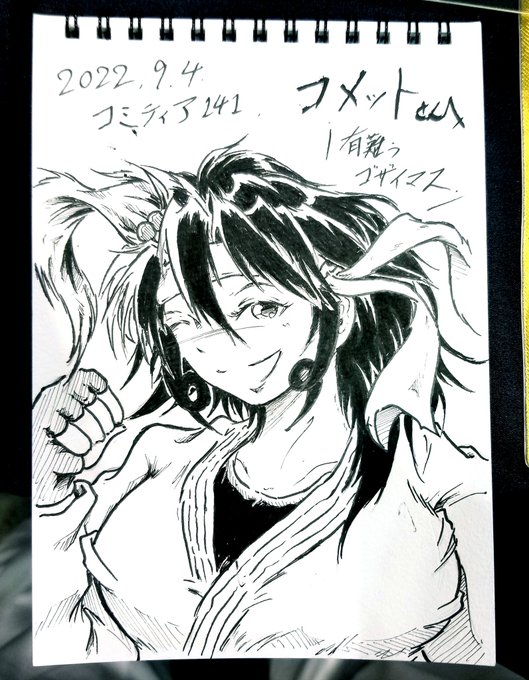 2022.9.4.
コミティア141.
コメットさん
有難う
ゴザイマス